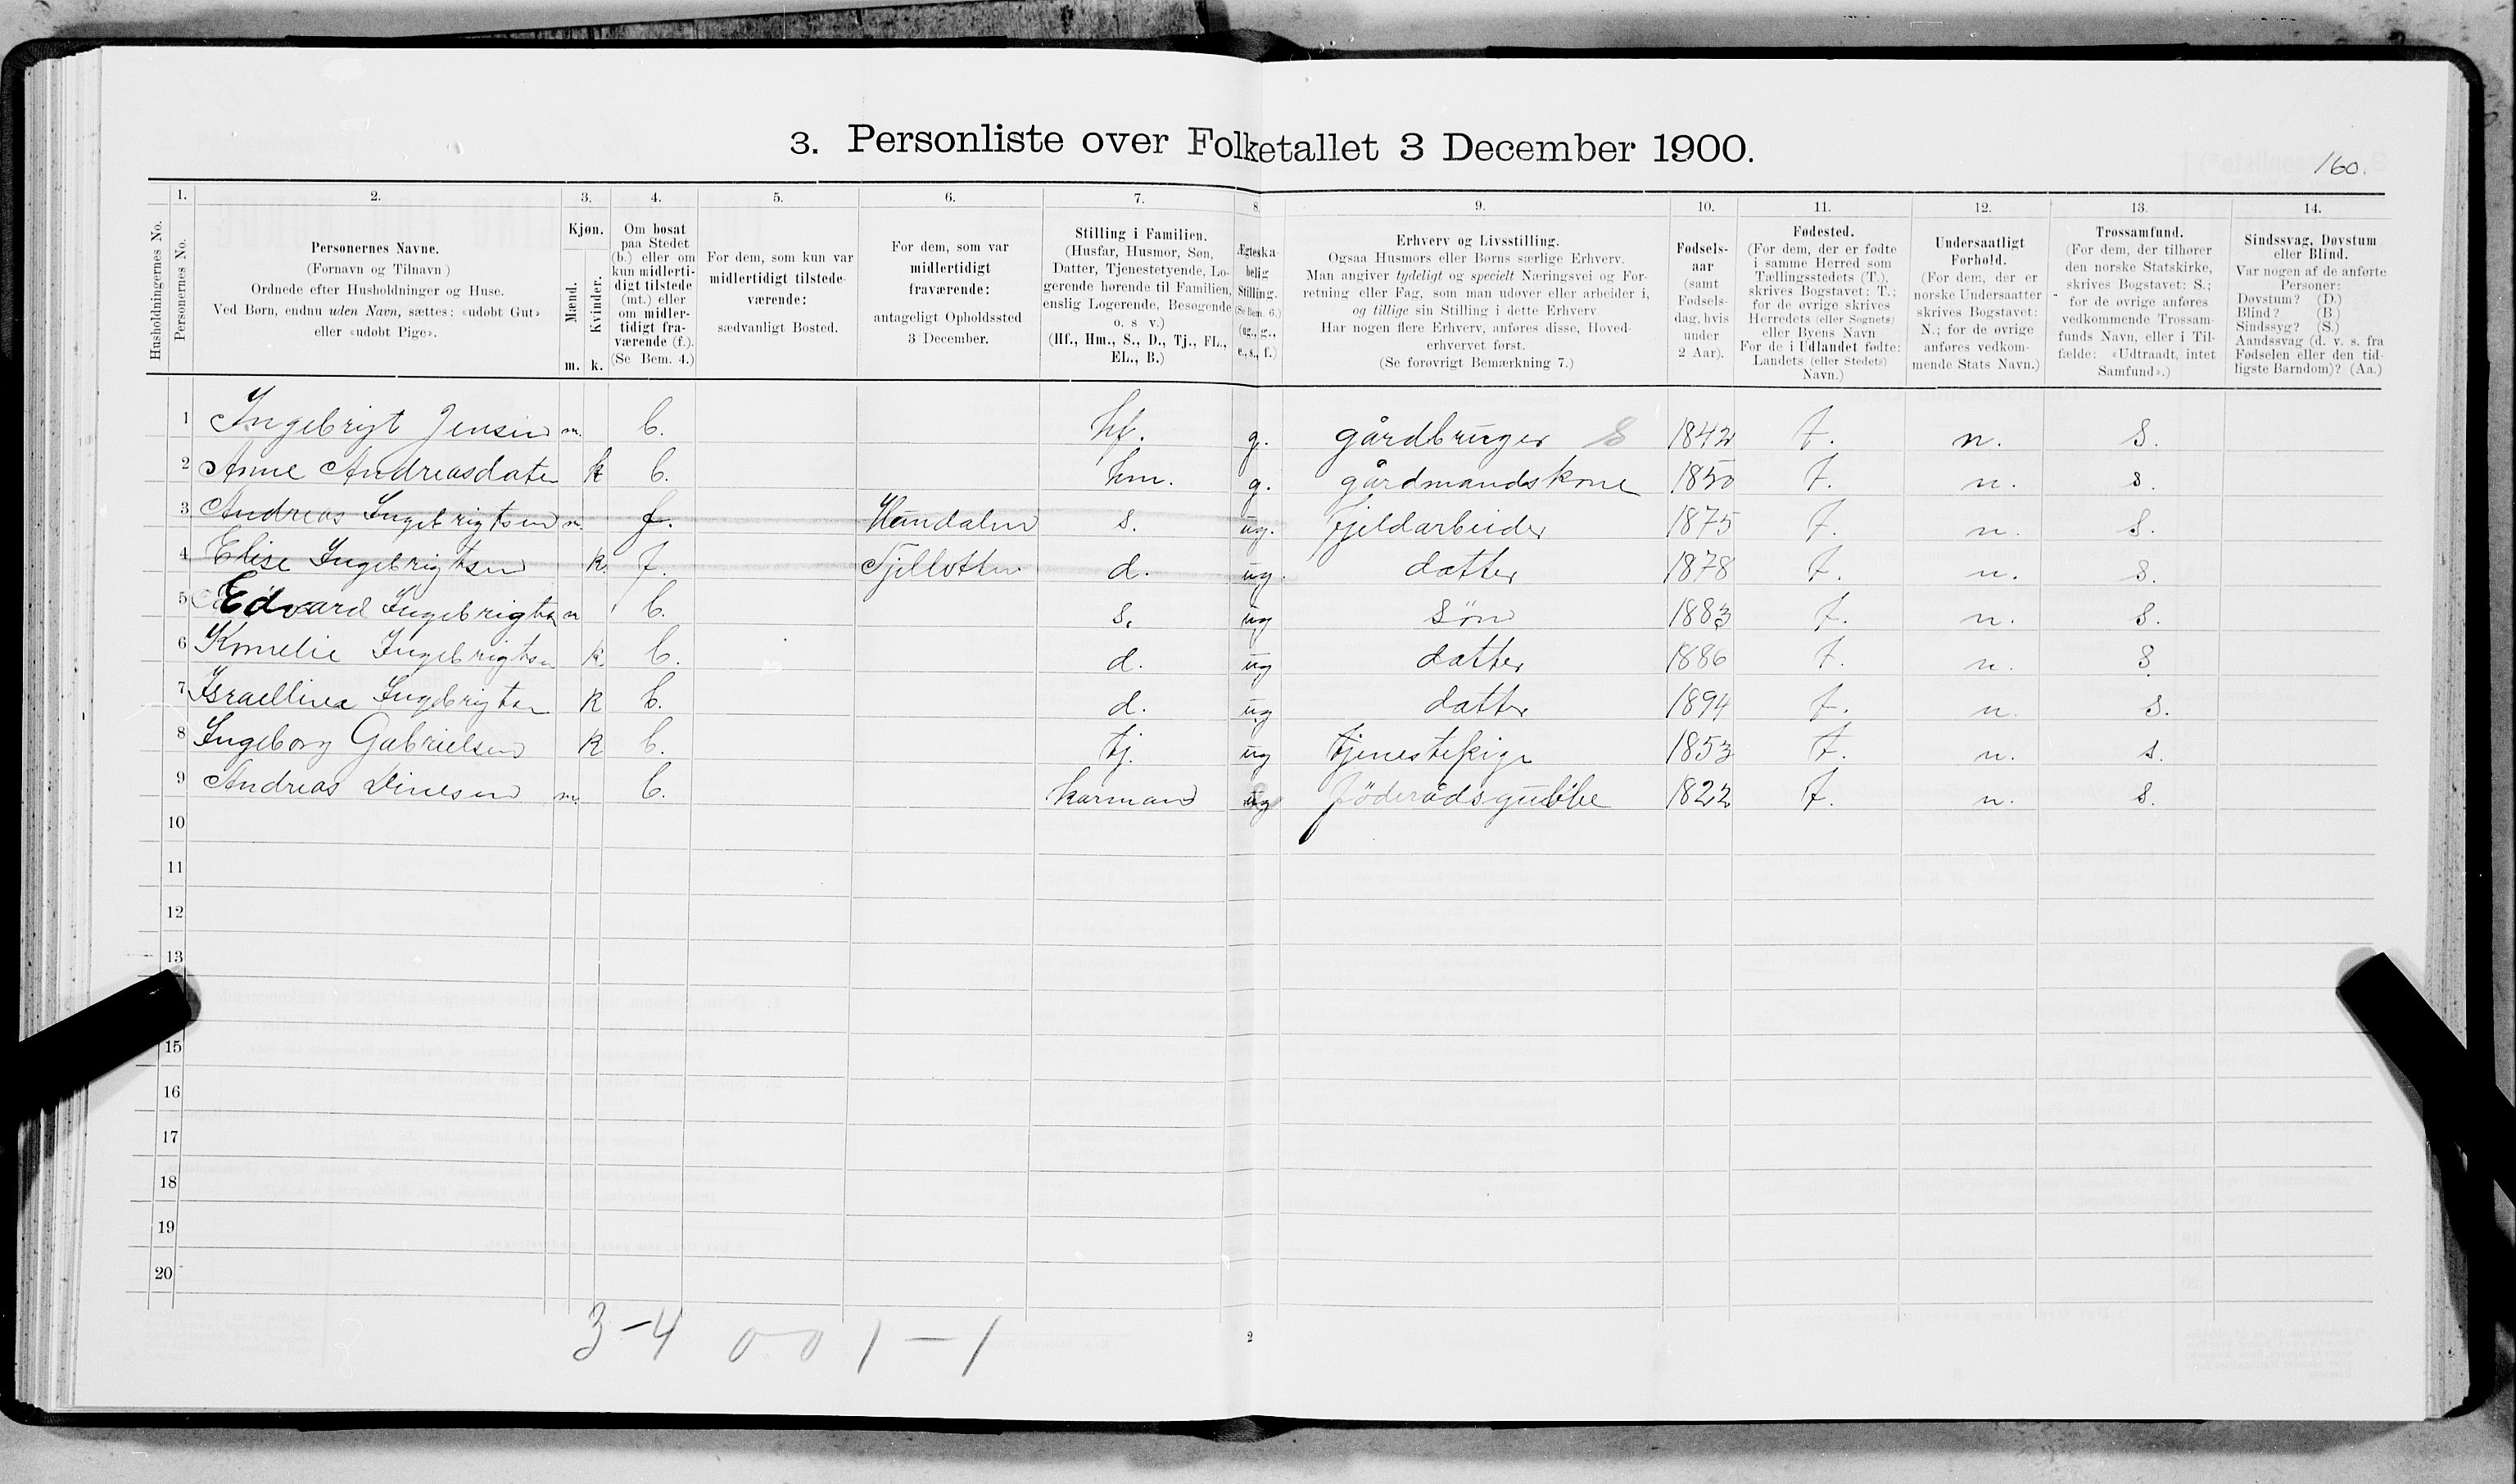 3. Personliste over Folketallet 3 December 1900.
160.
Husholdningernes No.
1. Personernes No.
2. Personernes Navne.
(Fornavn og Tilnavn)
Ordnede efter Husholdninger og Huse.
Ved Børn, endnu uden Navn, sættes: «udøbt Gut»
eller «udøbt Pige».
3. Kjøn.
Mænd. m.
Kvinder. k.
4. Om bosat
paa Stedet
(b.) eller om
kun midlerti-
digt tilstede
(mt.) eller
om midler-
tidigt fra-
værende (f.).
(Se Bem. 4.)
5. For dem, som kun var
midlertidigt tilstede-
værende:
sædvanligt Bosted.
6. For dem, som var
midlertidigt
fraværende:
antageligt Opholdssted
3 December.
7. Stilling i Familien.
(Husfar, Husmor, Søn,
Datter, Tjenestetyende, Lo-
gerende hørende til Familien,
enslig Logerende, Besøgende
o. s v.)
(Hf., Hm., S., D., Tj., FL.,
EL., B.)
8. Ægteska-
belig
Stilling.
(Se Bem. 6.)
(ug., g.,
e., s., f.)
9. Erhverv og Livsstilling.
Ogsaa Husmors eller Børns særlige Erhverv.
Man angiver tydeligt og specielt Næringsvei og For-
retning eller Fag, som man udøver eller arbeider i,
og tillige sin Stilling i dette Erhverv
Har nogen flere Erhverv, anføres disse, Hoved-
erhvervet først.
(Se forøvrigt Bemærkning 7.)
10. Fødsels-
aar
(samt
Fødsels-
dag, hvis
under
2 Aar).
11. Fødested.
(For dem, der er fødte
i samme Herred som
Tællingsstedets (T.),
skrives Bogstavet: T.;
for de øvrige skrives
Herredets (eller Sognets)
eller Byens Navn
For de i Udlandet fødte:
Landets (eller Stedets)
Navn.)
12. Undersaatligt
Forhold.
(For dem, der er
norske Undersaatter
skrives Bogstavet:
N.; for de øvrige
anføres vedkom-
mende Stats Navn.)
13. Trossamfund.
(For dem, der tilhører
den norske Statskirke,
skrives Bogstavet: S.;
for de øvrige anføres
vedkommende Trossam-
funds Navn, eller i Til-
fælde: «Udtraadt, intet
Samfund».)
14. Sindssvag, Døvstum
eller Blind.
Var nogen af de anførte
Personer:
Døvstum? (D.)
Blind? (B.)
Sindssyg? (S.)
Aandssvag (d. v. s. fra
Fødselen eller den tid-
ligste Barndom)? (Aa.)
1 Ingebrigt Jensen m. b. hf. g. gårdbruger S 1842 t. n. s.
2 Anne Andreasdater k b. hm. g. gårdmandskone 1850 t. n. s.
3 Andreas Ingebrigtsen m. f. s. ug. fjeldarbeider 1875 t. n. s.
4 Elise Ingebrigtsen k. f. d. ug. datter 1878 t. n. s.
5 Edvard Ingebrigtsen m b. s. ug søn 1883 t. n. s.
6 Kornelie Ingebrigtsen k. b. d. ug datter 1886 t. n. s.
7 Israelline Ingebrigtsen k b. d. ug datter 1894 t. n. s.
8 Ingeborg Gabrielsen k b. tj. ug tjenestepige 1853 t. n. s.
9 Andreas m. b. karmand føderådsgubbe 1822 t. n. s.
10
11
12
13
15
16
17
18
19
20
3-4 0-0 1-1
2